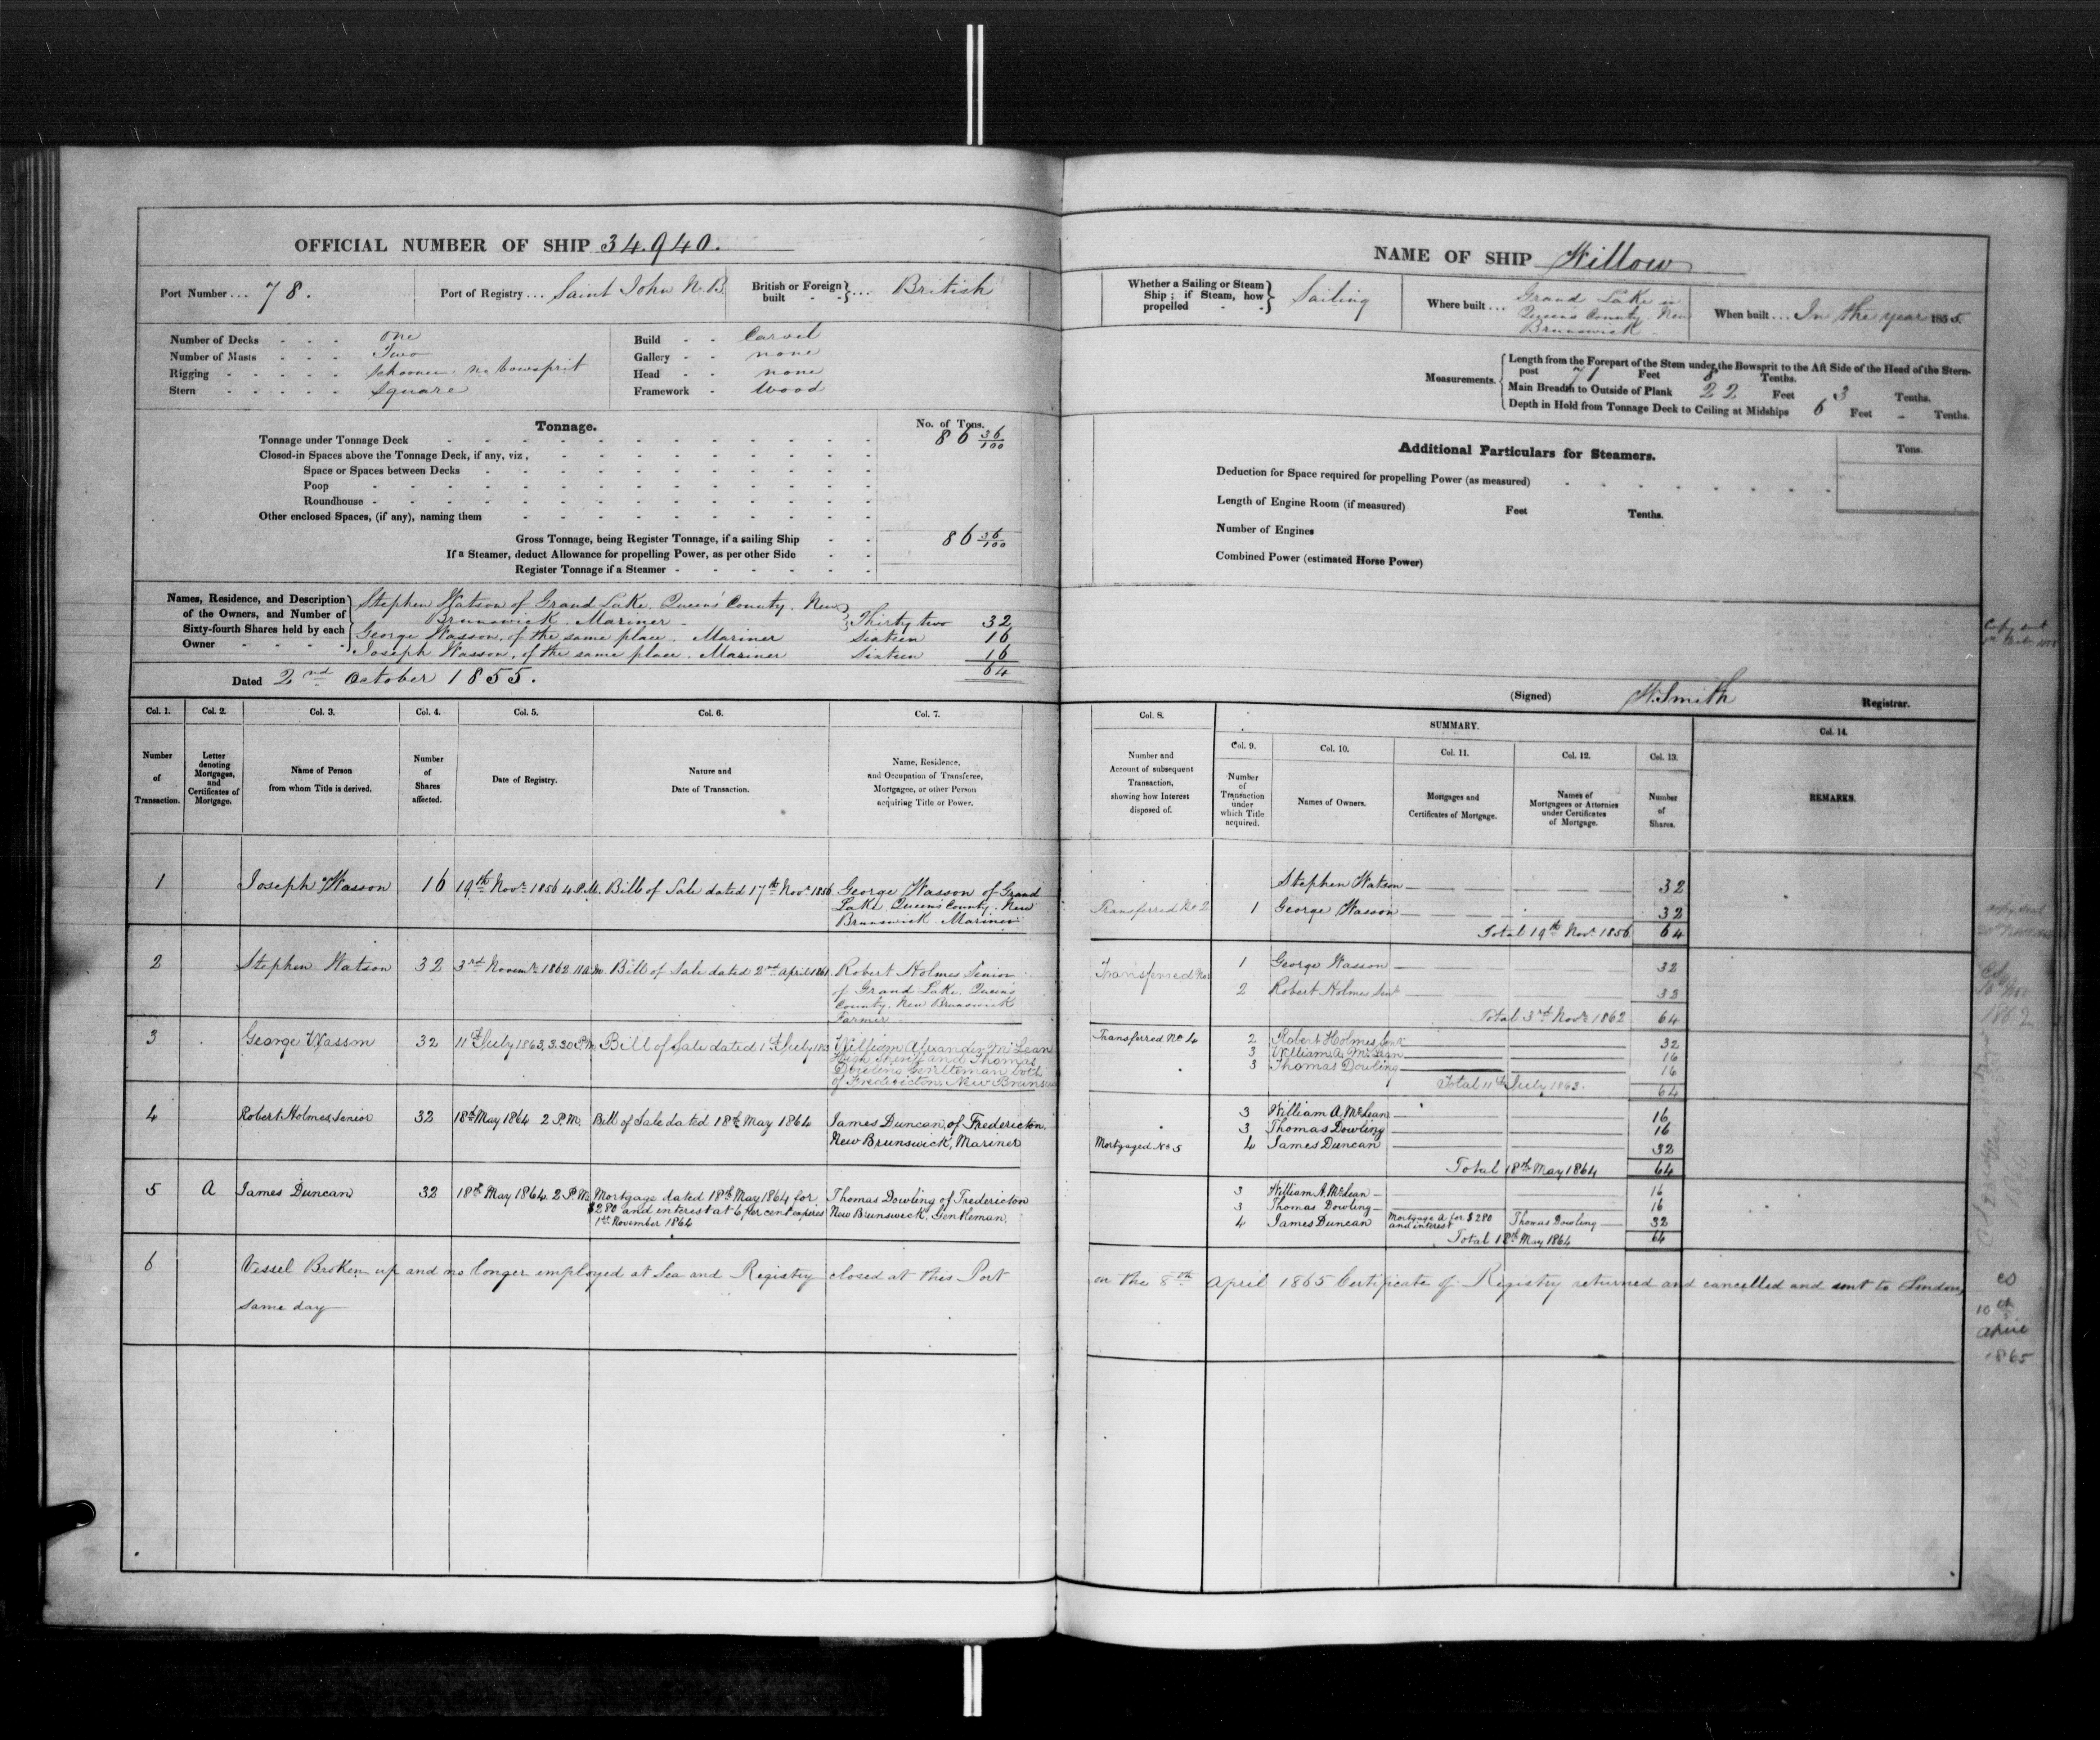 OFFICIAL NUMBER OF SHIP 34.940.
Port Number ... 78.
Port of Registry ... Saint John N.B.
British or Foreign built - - } ... British
Number of Decks - - - one
Number of Masts - - - Two
Rigging - - - - - Schooner. no bowsprit
Stern - - - - - Square
Build - - Carvel
Gallery - - none
Head - - none
Framework - Wood
Tonnage.
No. of Tons.
Tonnage under Tonnage Deck 86 36/100
Closed-in Spaces above the Tonnage Deck, if any, viz,
Space or Spaces between Decks
Poop
Roundhouse
Other enclosed Spaces, (if any), naming them
Gross Tonnage, being Register Tonnage, if a sailing Ship - - 86 36/100
If a Steamer, deduct Allowance for propelling Power, as per other Side
Register Tonnage if a Steamer
Names, Residence, and Description of the Owners, and Number of Sixty-fourth Shares held by each Owner
Stephen Watson of Grand Lake. Queens' County. New
Brunswick. Mariner - } Thirty two 32
George Wasson, of the same place. Mariner Sixteen 16
Joseph Wasson, of the same place. Mariner Sixteen 16
64
Dated 2nd October 1855.
Col. 1. Col. 2. Col. 3. Col. 4. Col. 5. Col. 6. Col. 7.
Number of Transaction.
Letter denoting Mortgages, and Certificates of Mortgage.
Name of Person from whom Title is derived.
Number of Shares affected.
Date of Registry.
Nature and Date of Transaction.
Name, Residence, and Occupation of Transferee, Mortgagee, or other Person acquiring Title or Power.
1 Joseph Wasson 16 19th Novr. 1856 4 P.M. Bill of Sale dated 17th Novr. 1856 George Wasson of Grand
Lake. Queens' County. New
Brunswick. Mariner
2 Stephen Watson 32 3rd Novemr. 1862 11 A.M. Bill of Sale dated 2nd April 1861 Robert Holmes Senior
of Grand Lake. Queens
County. New Brunswick
Farmer
3 George Wasson 32 11th July 1863, 3.30 P.M. Bill of Sale dated 1st July 1863 William Alexander McLean
High Sheriff and Thomas
Dowling Gentleman both
of Fredericton, New Brunswick
4 Robert Holmes, Senior 32 18th May 1864 2 P.M. Bill of Sale dated 18th May 1864 James Duncan, of Fredericton,
New Brunswick, Mariner
5 A James Duncan 32 18th May 1864. 2 P.M. Mortgage dated 18th May 1864 for
$280 and interest at 6 per cent expires
1st November 1864
Thomas Dowling of Fredericton
New Brunswick, Gentleman.
6 Vessel Broken up and no longer employed at Sea and Registry closed at this Port
same day
NAME OF SHIP Willow
Whether a Sailing or Steam Ship; if Steam, how propelled - - } Sailing
Where built ... Grand Lake in
Queen's County. New
Brunswick -
When built ... In the year 1855.
Measurements.
Length from the Forepart of the Stem under the Bowsprit to the Aft Side of the Head of the Stern-
post 71 Feet 8 Tenths.
Main Breadth to Outside of Plank 22 Feet 3 Tenths.
Depth in Hold from Tonnage Deck to Ceiling at Midships 6 Feet - Tenths.
Additional Particulars for Steamers.
Tons.
Deduction for Space required for propelling Power (as measured)
Length of Engine Room (if measured) Feet Tenths.
Number of Engines
Combined Power (estimated Horse Power)
Copy sent
(Signed) W. Smith Registrar.
Col. 8.
Number and Account of subsequent Transaction, showing how Interest disposed of.
SUMMARY.
Col. 9. Col. 10. Col. 11. Col. 12. Col. 13. Col. 14.
Number of Transaction under which Title acquired.
Names of Owners.
Mortgages and Certificates of Mortgage.
Names of Mortgagees or Attornies under Certificates of Mortgage.
Number of Shares.
REMARKS.
Stephen Watson 32
Transferred No 2 1 George Wasson 32
Total 19th Novr. 1856. 64
Transferred No 3 1 George Wasson 32
2 Robert Holmes Senr. 32
Total 3rd Novr. 1862 64
Transferred No 4 2 Robert Holmes, Senr. 32
3 William A. McLean 16
3 Thomas Dowling 16
Total 11th July 1863. 64
3 William A. McLean 16
3 Thomas Dowling 16
Mortgaged No 5 4 James Duncan 32
Total 18th May 1864 64
3 William A. McLean 16
3 Thomas Dowling 16
4 James Duncan Mortgage A for $280 and interest Thomas Dowling 32
Total 18th May 1864 64
on the 8th April 1865 Certificate of Registry returned and cancelled and sent to London
Nov
1862
CS
10th
April
1865